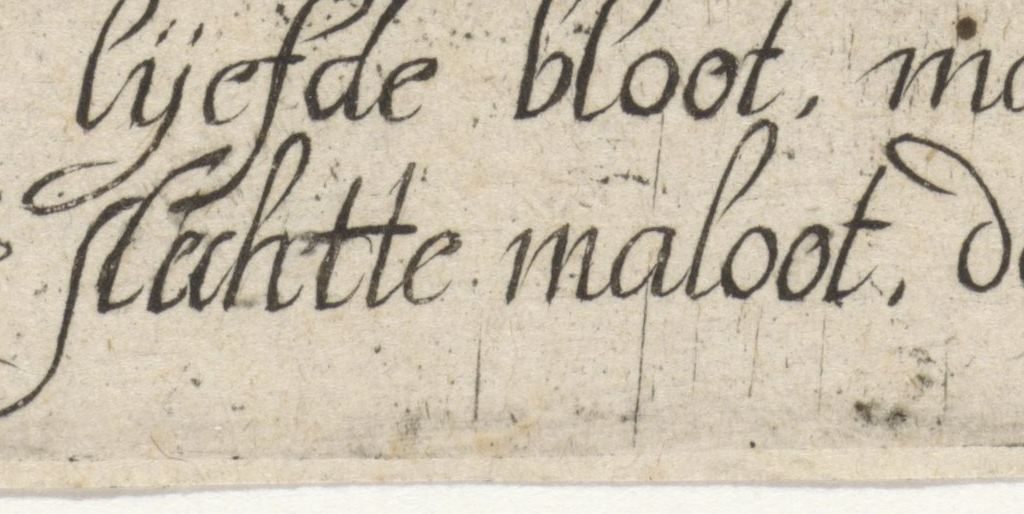 lijefde bloot, m
slechtte maloot, d